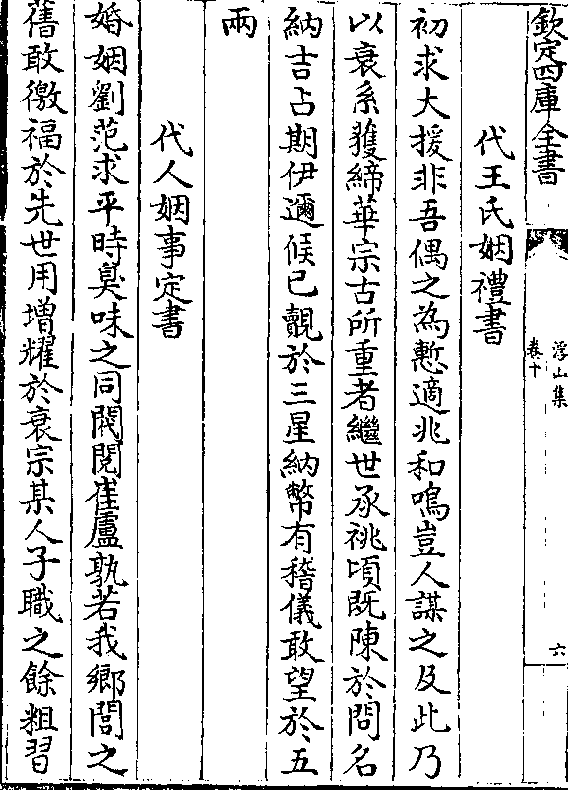 欽定四庫全書
浮山集
卷十
六
代王氏姻禮書
初求大援非吾偶之為慙適兆和鳴豈人謀之及此乃
以衰系獲締華宗古所重者繼世承祧頃既陳於問名
納吉占期伊邇候已覿於三星納幣有稽儀敢望於五
兩
代人姻事定書
婚姻劉范求平時臭味之同閥閱崔盧孰若我鄉閭之
舊敢徼福於先世用增耀於衰宗某人子職之餘粗習